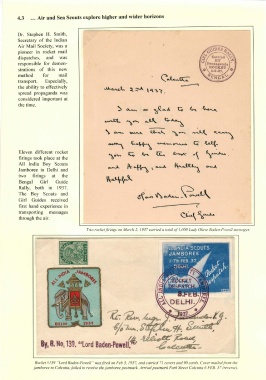 4.3 ... Air and Sea Scouts explore higher and wider horizons
Dr. Stephen H. Smith,
Secretary of the Indian
Air Mail Society, was a
pioneer in rocket mail
dispatches, and was
responsible for demon-
strations of this new
method for mail
transport. Especially,
the ability to effectively
spread propaganda was
considered important at
the time.
Calcutta
March 2nd 1937.
I am so glad to be here
with you all today
I am sure that you will carry
away happy memories to help
you to be the best of Guides
and Happy, and Healthy and
Helpful.
Olave Baden Powell
Chief Guide
Eleven different rocket
firings took place at the
All India Boy Scouts
Jamboree in Delhi and
two firings at the
Bengal Girl Guide
Rally, both in 1937.
The Boy Scouts and
Girl Guides received
first hand experience in
transporting messages
through the air.
Two rocket firings on March 2, 1937 carried a total of 1,000 Lady Olave Baden-Powell messages.
SCOUTS
JAMBOREE
FEB. 37
DELHI.
DELHI 1937
By, R. No, 139, "Lord Baden-Powell."
Stephen H. Smith
Calcutta
Rocket #139 "Lord Baden-Powell" was fired on Feb 5, 1937, and carried 71 covers and